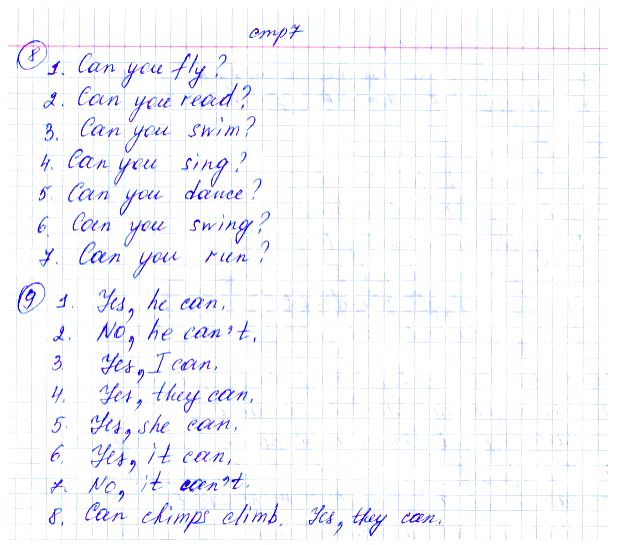 стр 7
8 1. Can you fly?
2. Can you read?
3. Can you swim?
4. Can you sing?
5 Can you dance?
6. Can you swing?
7. Can you run?
9 1. Yes, he can.
2. No, he can't.
3. Yes, I can.
4. Yes, they can.
5. Yes, she can.
6. Yes, it can.
7. No, it can't.
8. Can chimps climb. Yes, they can.